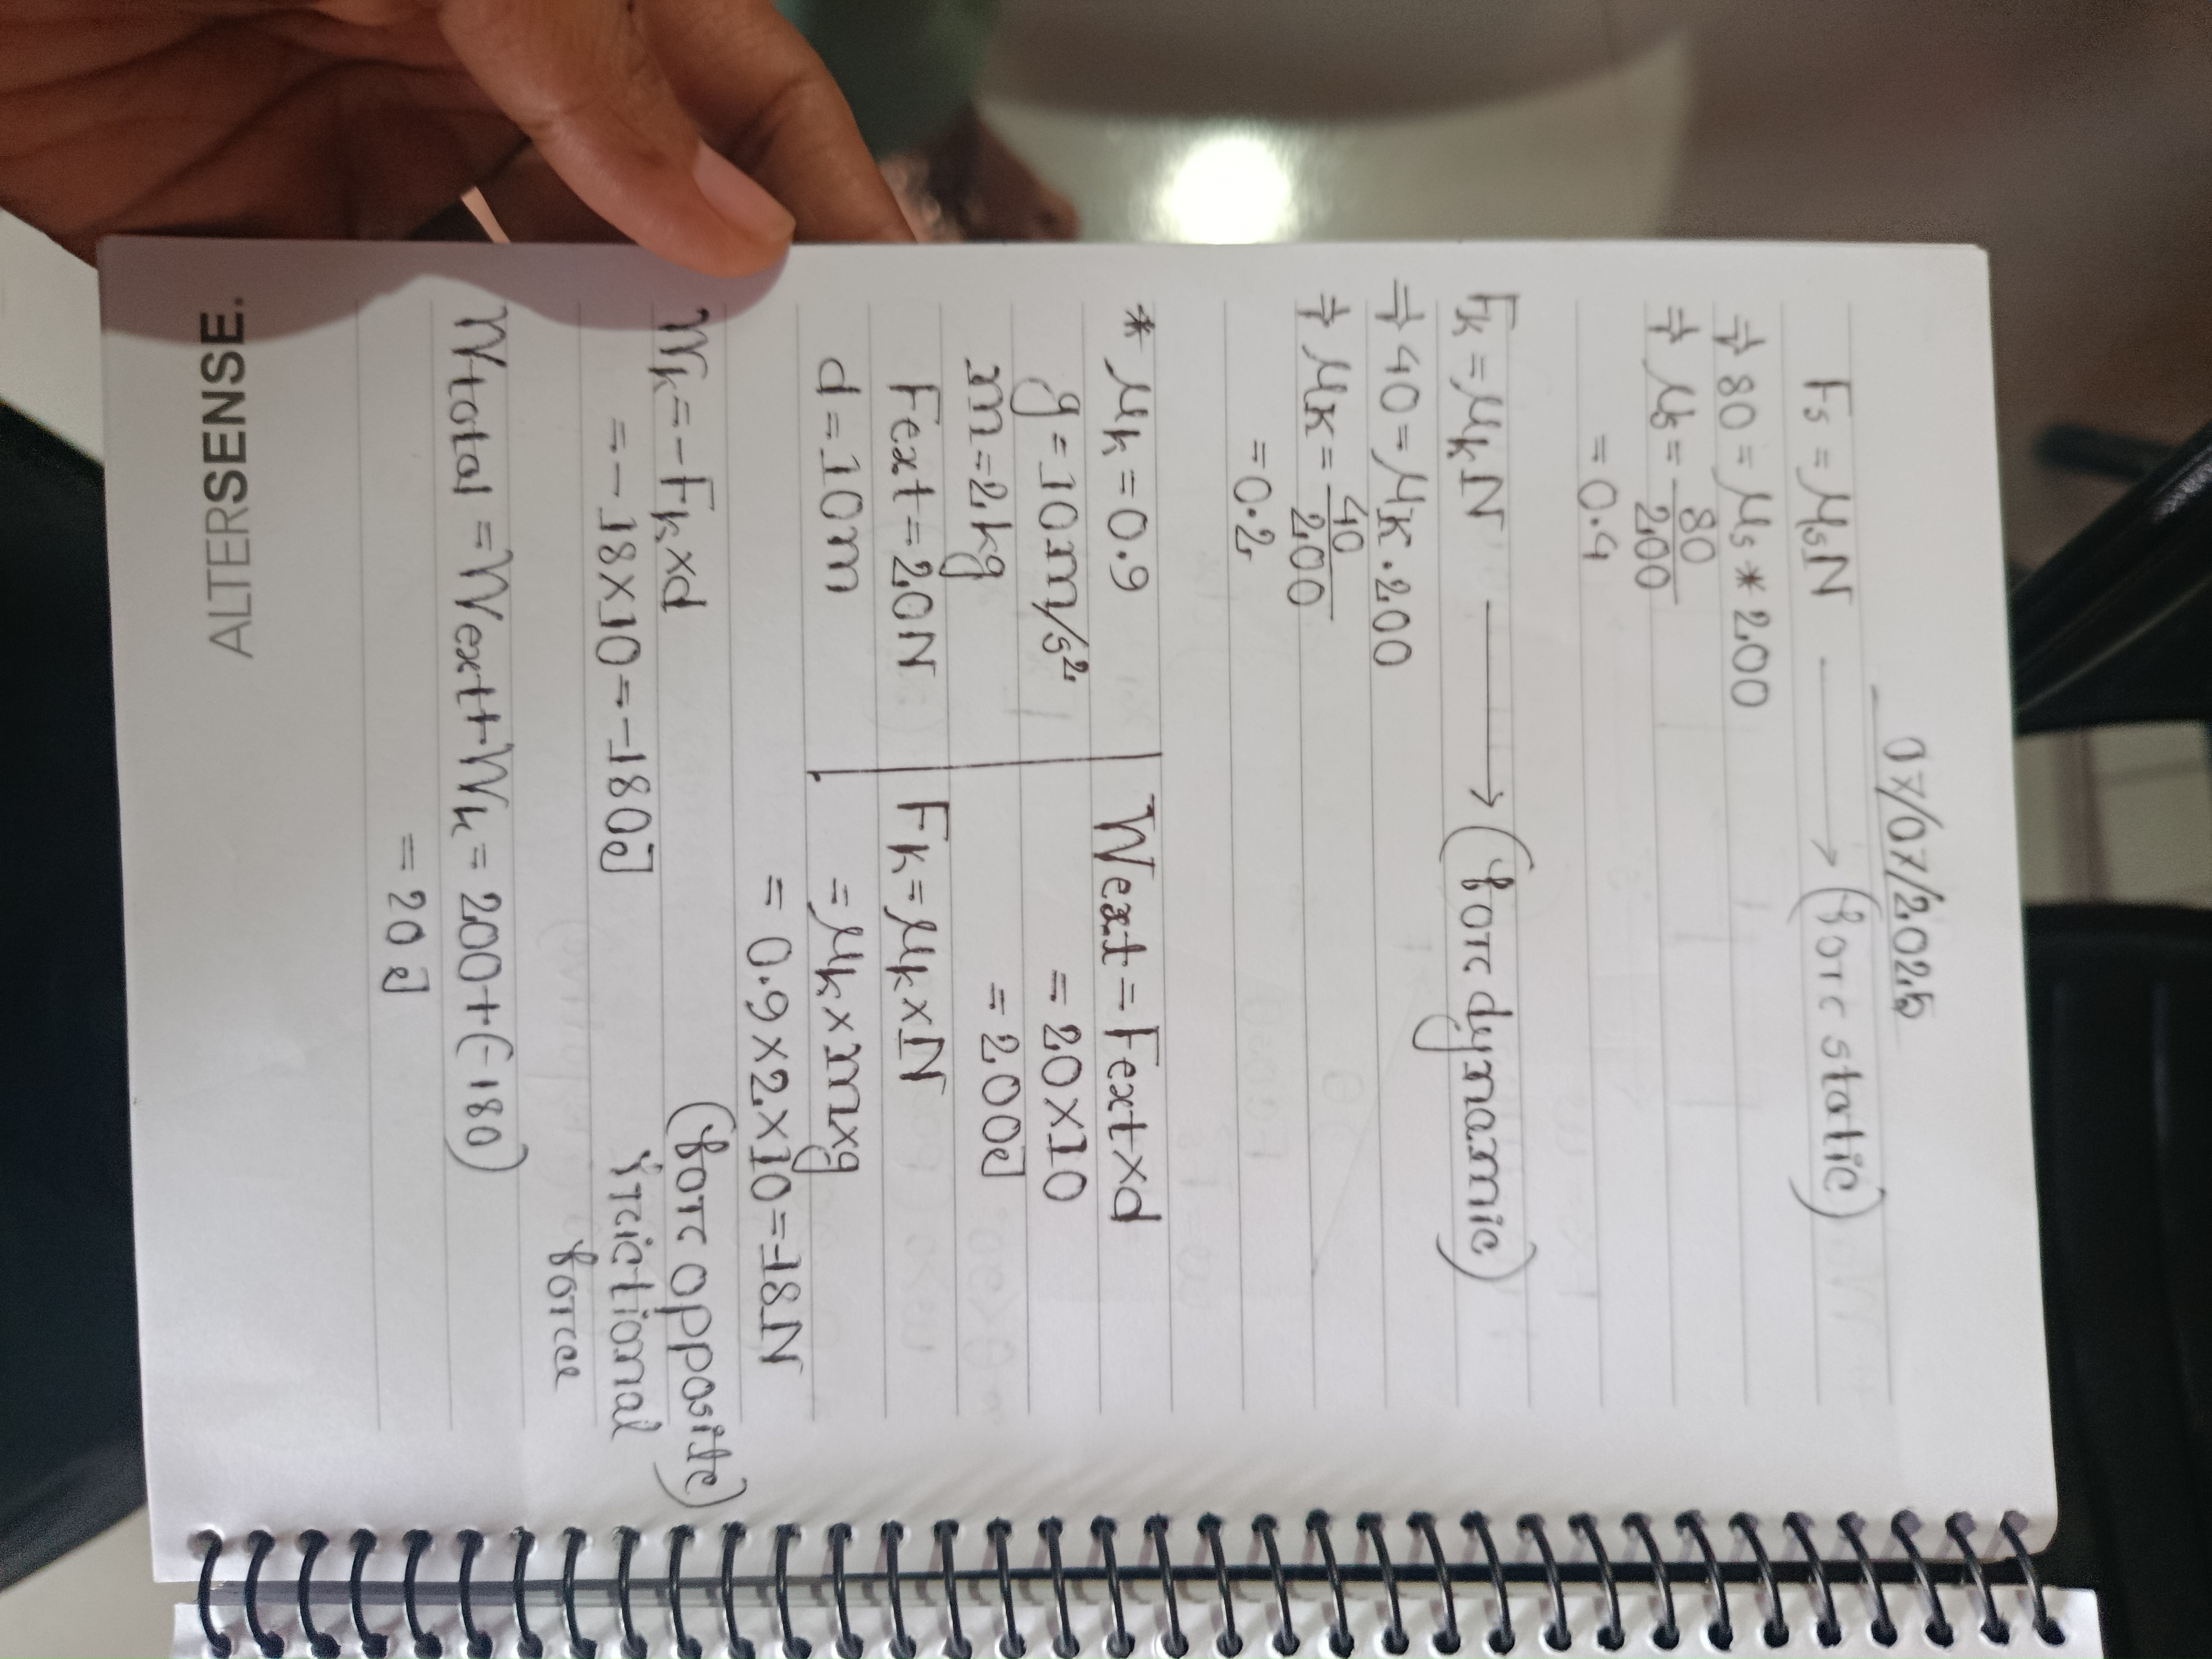 07/07/2025
Fs = μsN ⟶ (for static)
⇒ 80 = μs * 200
⇒ μs = 80/200
= 0.4
Fk = μkN ⟶ (for dynamic)
⇒ 40 = μk . 200
⇒ μk = 40/200
= 0.2
* μk = 0.9
g = 10m/s²
m = 2kg
Fext = 20N
d = 10m
Wext = Fext×d
= 20×10
= 200J
Fk = μk×N
= μk×m×g
= 0.9×2×10 = 18N
Wk = -Fk×d (for opposite)
= -18×10 = -180J frictional
force
Wtotal = Wext+Wk = 200+(-180)
= 20J
ALTERSENSE.